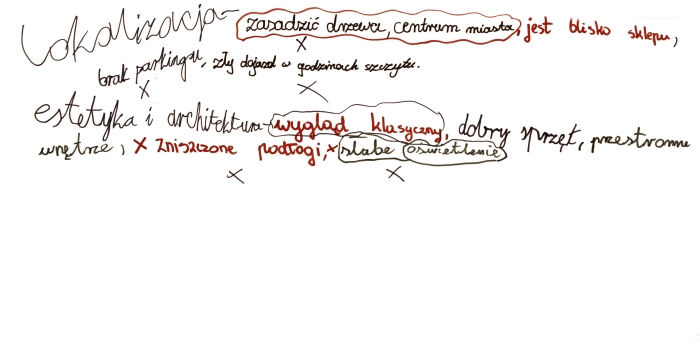 Lokalizacja- zasadzić drzewa, centrum miasta, jest blisko sklepu,
brak parkingu, zły dojazd w godzinach szczytu.
estetyka i architektura- wygląd klasyczny, dobry sprzęt, przestronne
wnętrze, x zniszczone podłogi, x słabe oświetlenie